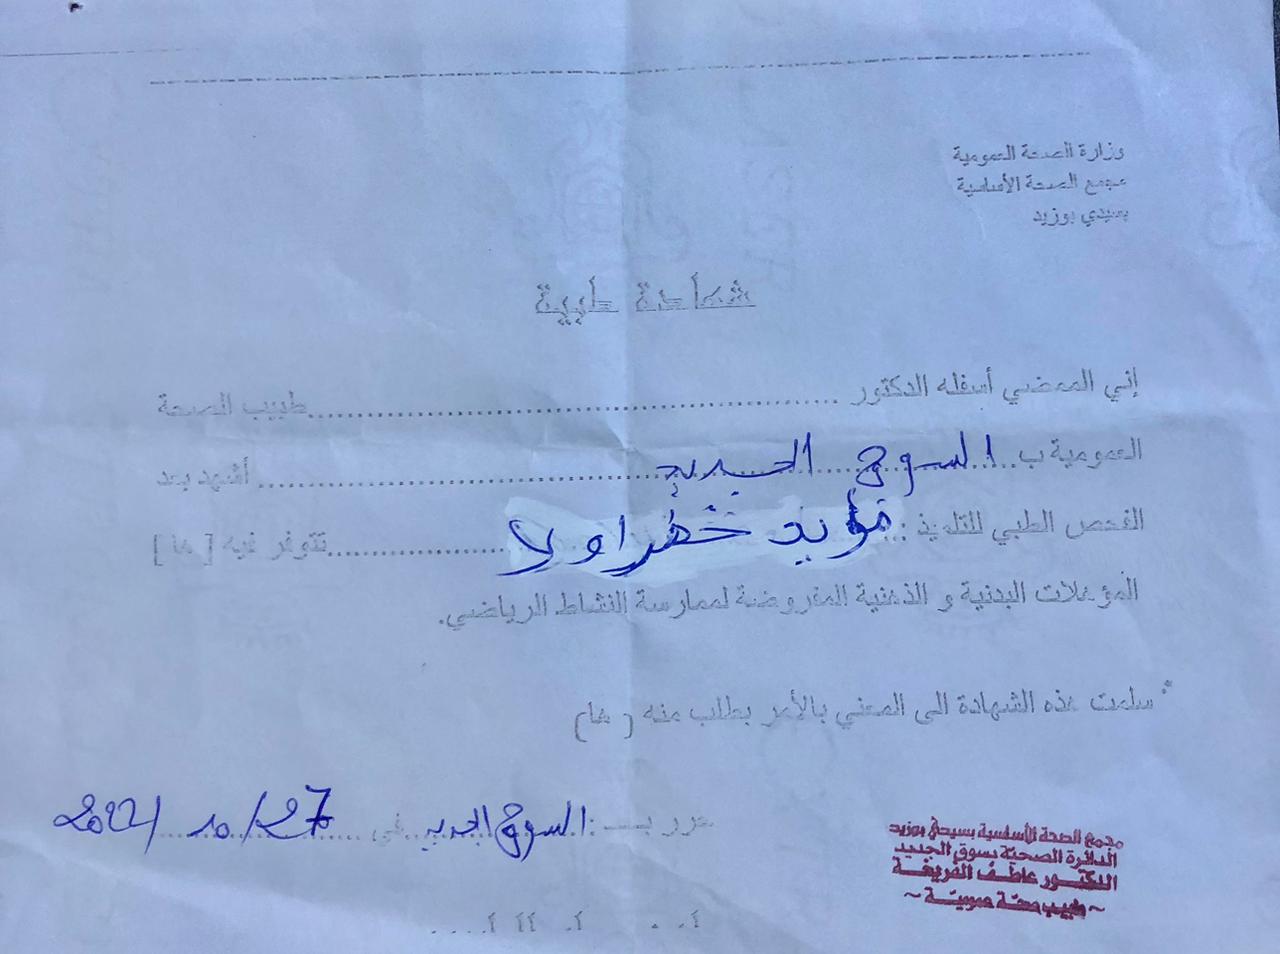 وزارة الصحة العمومية
مجمع الصحة الأساسية
بسيدي بوزيد
شهادة طبية
إني الممضي أسفله الدكتور ........................ طبيب الصحة
العمومية ب.. السوق الجديد ........................ أشهد بعد
الفحص الطبي للتلميذ : مؤيد خضراوي ................ تتوفر فيه [ ها ]
المؤهلات البدنية و الذهنية المفروضة لممارسة النشاط الرياضي.
سلمت هذه الشهادة الى المعني بالأمر بطلب منه ( ها )
حرر بـــ : السوق الجديد في 27/10/2021
مجمع الصحة الأساسية بسيدي بوزيد
الدائرة الصحية بسوق الجديد
الدكتور عاطف
~ طبيب صحة عمومية ~